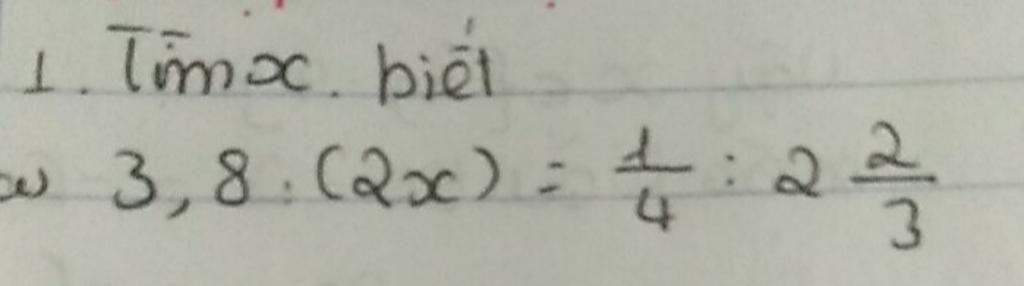 1. Tìm x. biết
a) 3,8 : (2x) = 1/4 : 2 2/3